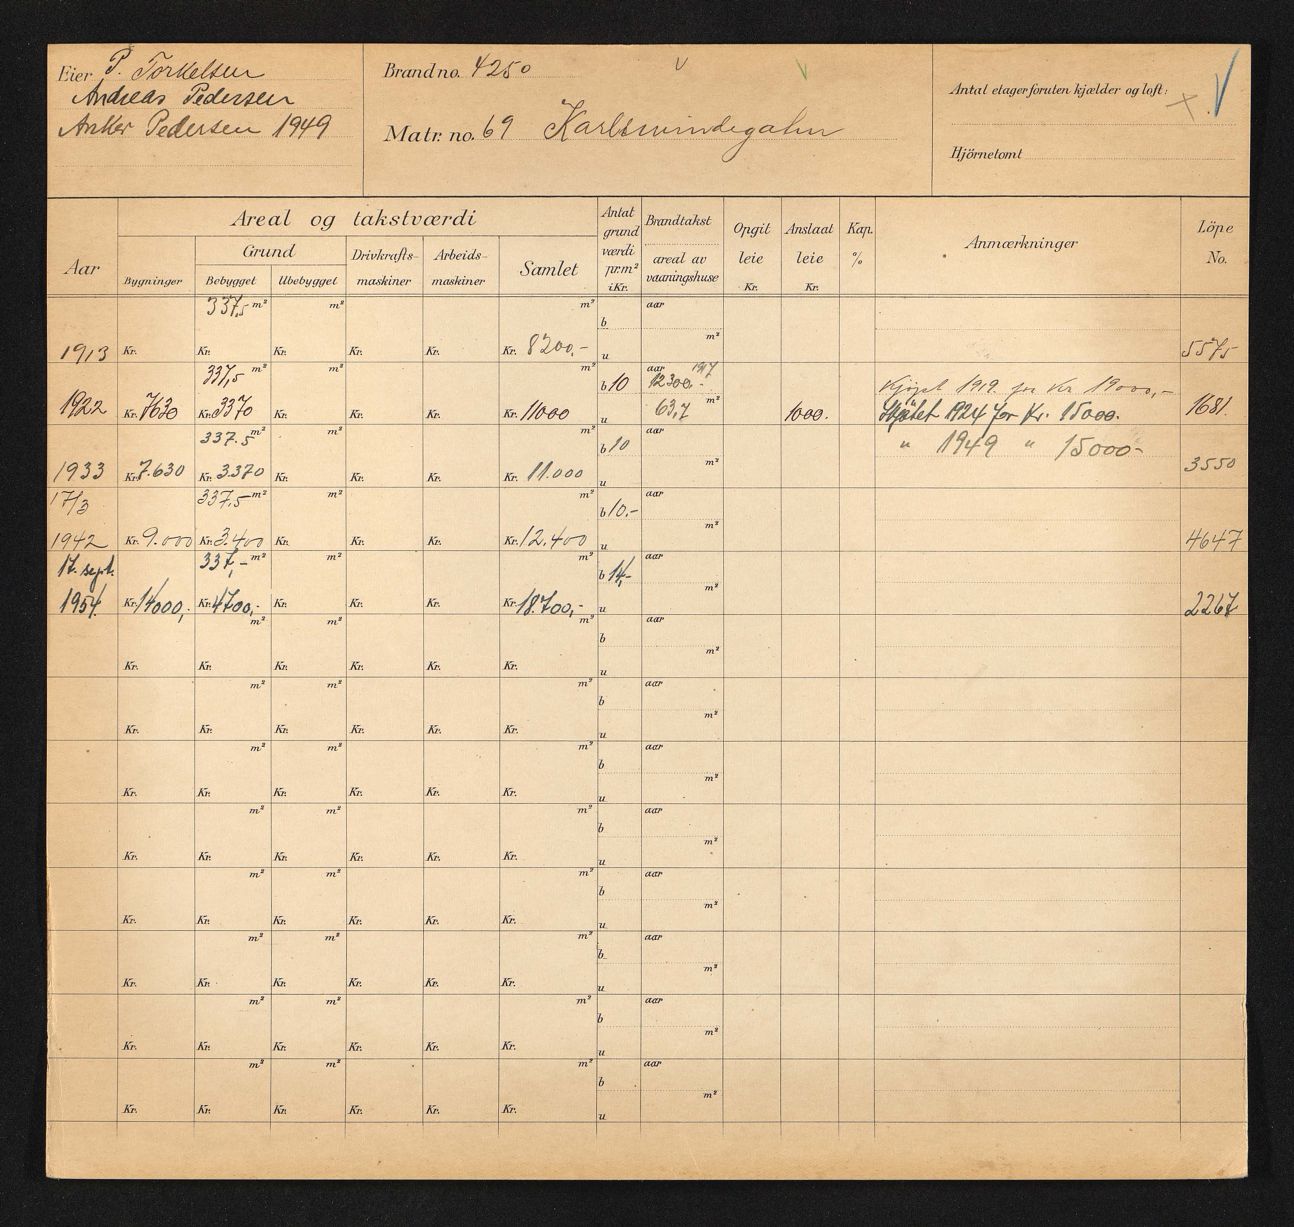 Eier P. Torkelsen
Andreas Pedersen
Anker Pedersen 1949
Brand no. 4250
Matr. no. 69 Karlsmindegaten
Antal etager foruten kjælder og loft:
Hjörnetomt
Areal og takstværdi
Aar
Bygninger
Grund
Bebygget
Ubebygget
Drivkrafts-
maskiner
Arbeids-
maskiner
Samlet
Antat
grund
værdi
pr. m²
i Kr.
Brandtakst
areal av
vaaningshuse
Opgit
leie
Kr.
Anslaat
leie
Kr.
Kap.
%
Anmærkninger
Löpe
No.
337,5 m² m² m² aar
b
m²
1913 Kr. Kr. Kr. Kr. Kr. Kr. 8200,- u 5575
337,5 m² m² m² aar 1917
b 10 12300.-
Kjöpt 1919. for Kr 19000,-
63,7 m²
1922 Kr. 7630 Kr. 3370 Kr. Kr. Kr. Kr. 11000 u 1000. Skjötet 1924 for Kr. 15000. 1681
337.5 m² m² m² aar
b 10 " 1949 " 15000-
m²
1933 Kr. 7.630 Kr. 3.370 Kr. Kr. Kr. Kr. 11.000 u 3550
17/3 337,5 m² m² m² aar
b 10.-
m²
1942 Kr. 9.000 Kr. 3.400 Kr. Kr. Kr. Kr. 12.400 u 4647
17. sept. 337,- m² m² m² aar
b 14,-
m²
1954. Kr. 14000,- Kr. 4700,- Kr. Kr. Kr. Kr. 18.700,- u 2267
m² m² m² aar
b
m²
Kr. Kr. Kr. Kr. Kr. Kr. u
m² m² m² aar
b
m²
Kr. Kr. Kr. Kr. Kr. Kr. u
m² m² m² aar
b
m²
Kr. Kr. Kr. Kr. Kr. Kr. u
m² m² m² aar
b
m²
Kr. Kr. Kr. Kr. Kr. Kr. u
m² m² m² aar
b
m²
Kr. Kr. Kr. Kr. Kr. Kr. u
m² m² m² aar
b
m²
Kr. Kr. Kr. Kr. Kr. Kr. u
m² m² m² aar
b
m²
Kr. Kr. Kr. Kr. Kr. Kr. u
m² m² m² aar
b
m²
Kr. Kr. Kr. Kr. Kr. Kr. u